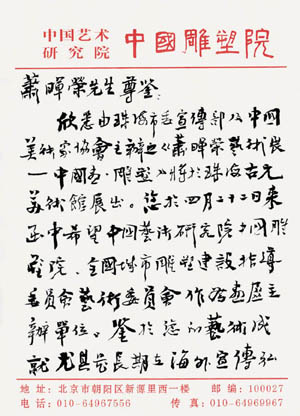 中国艺术
研究院
中國雕塑院
蕭暉榮先生尊鉴：
欣悉由珠海市委宣傳部及中國
美術家協會主辦之《蕭暉榮藝術展
—中國画·雕塑》將於珠海古元
美術館展出。您於四月二十二日来
函中希望中國藝術研究院中國雕
塑院、全國城市雕塑建設指導
委員會藝術委員會作為
主
辦單位。鉴於您的藝術成
就尤其是長期在海外宣傳弘
地址：北京市朝阳区新源里西一楼 邮编：100027
电话：010-64967556 传真：010-64969967